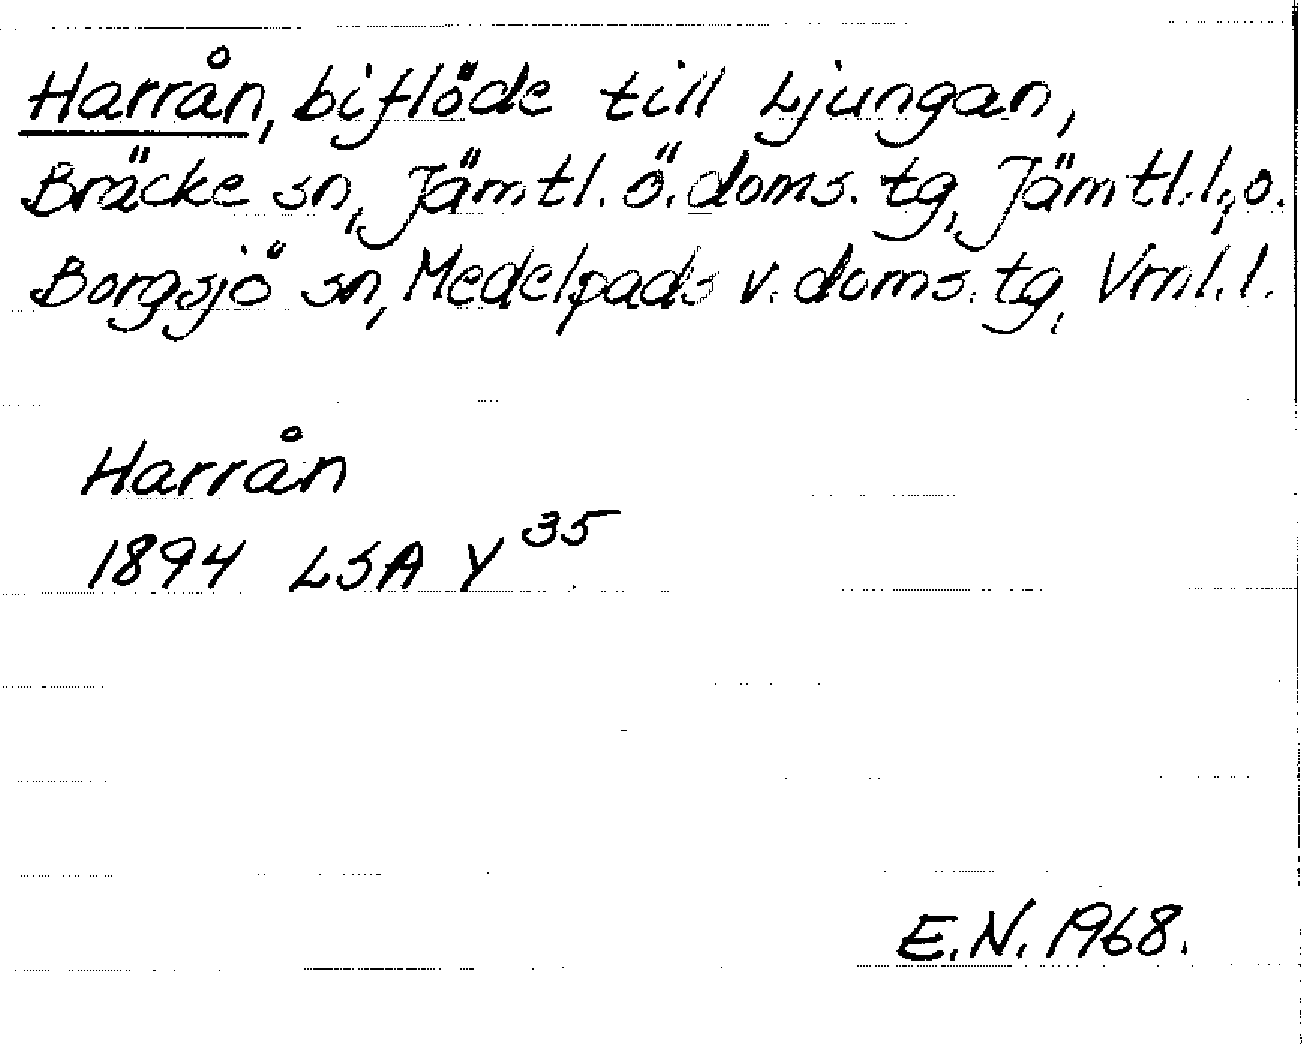 Harrån, biflöde till Ljungan,
Bräcke sn, Jämtl. ö. doms. tg, Jämtl. l., o.
Borgsjö sn, Medelpads v. doms. tg, Vrnl. l.
Harrån
1894 LSA Y 35
E.N. 1968.